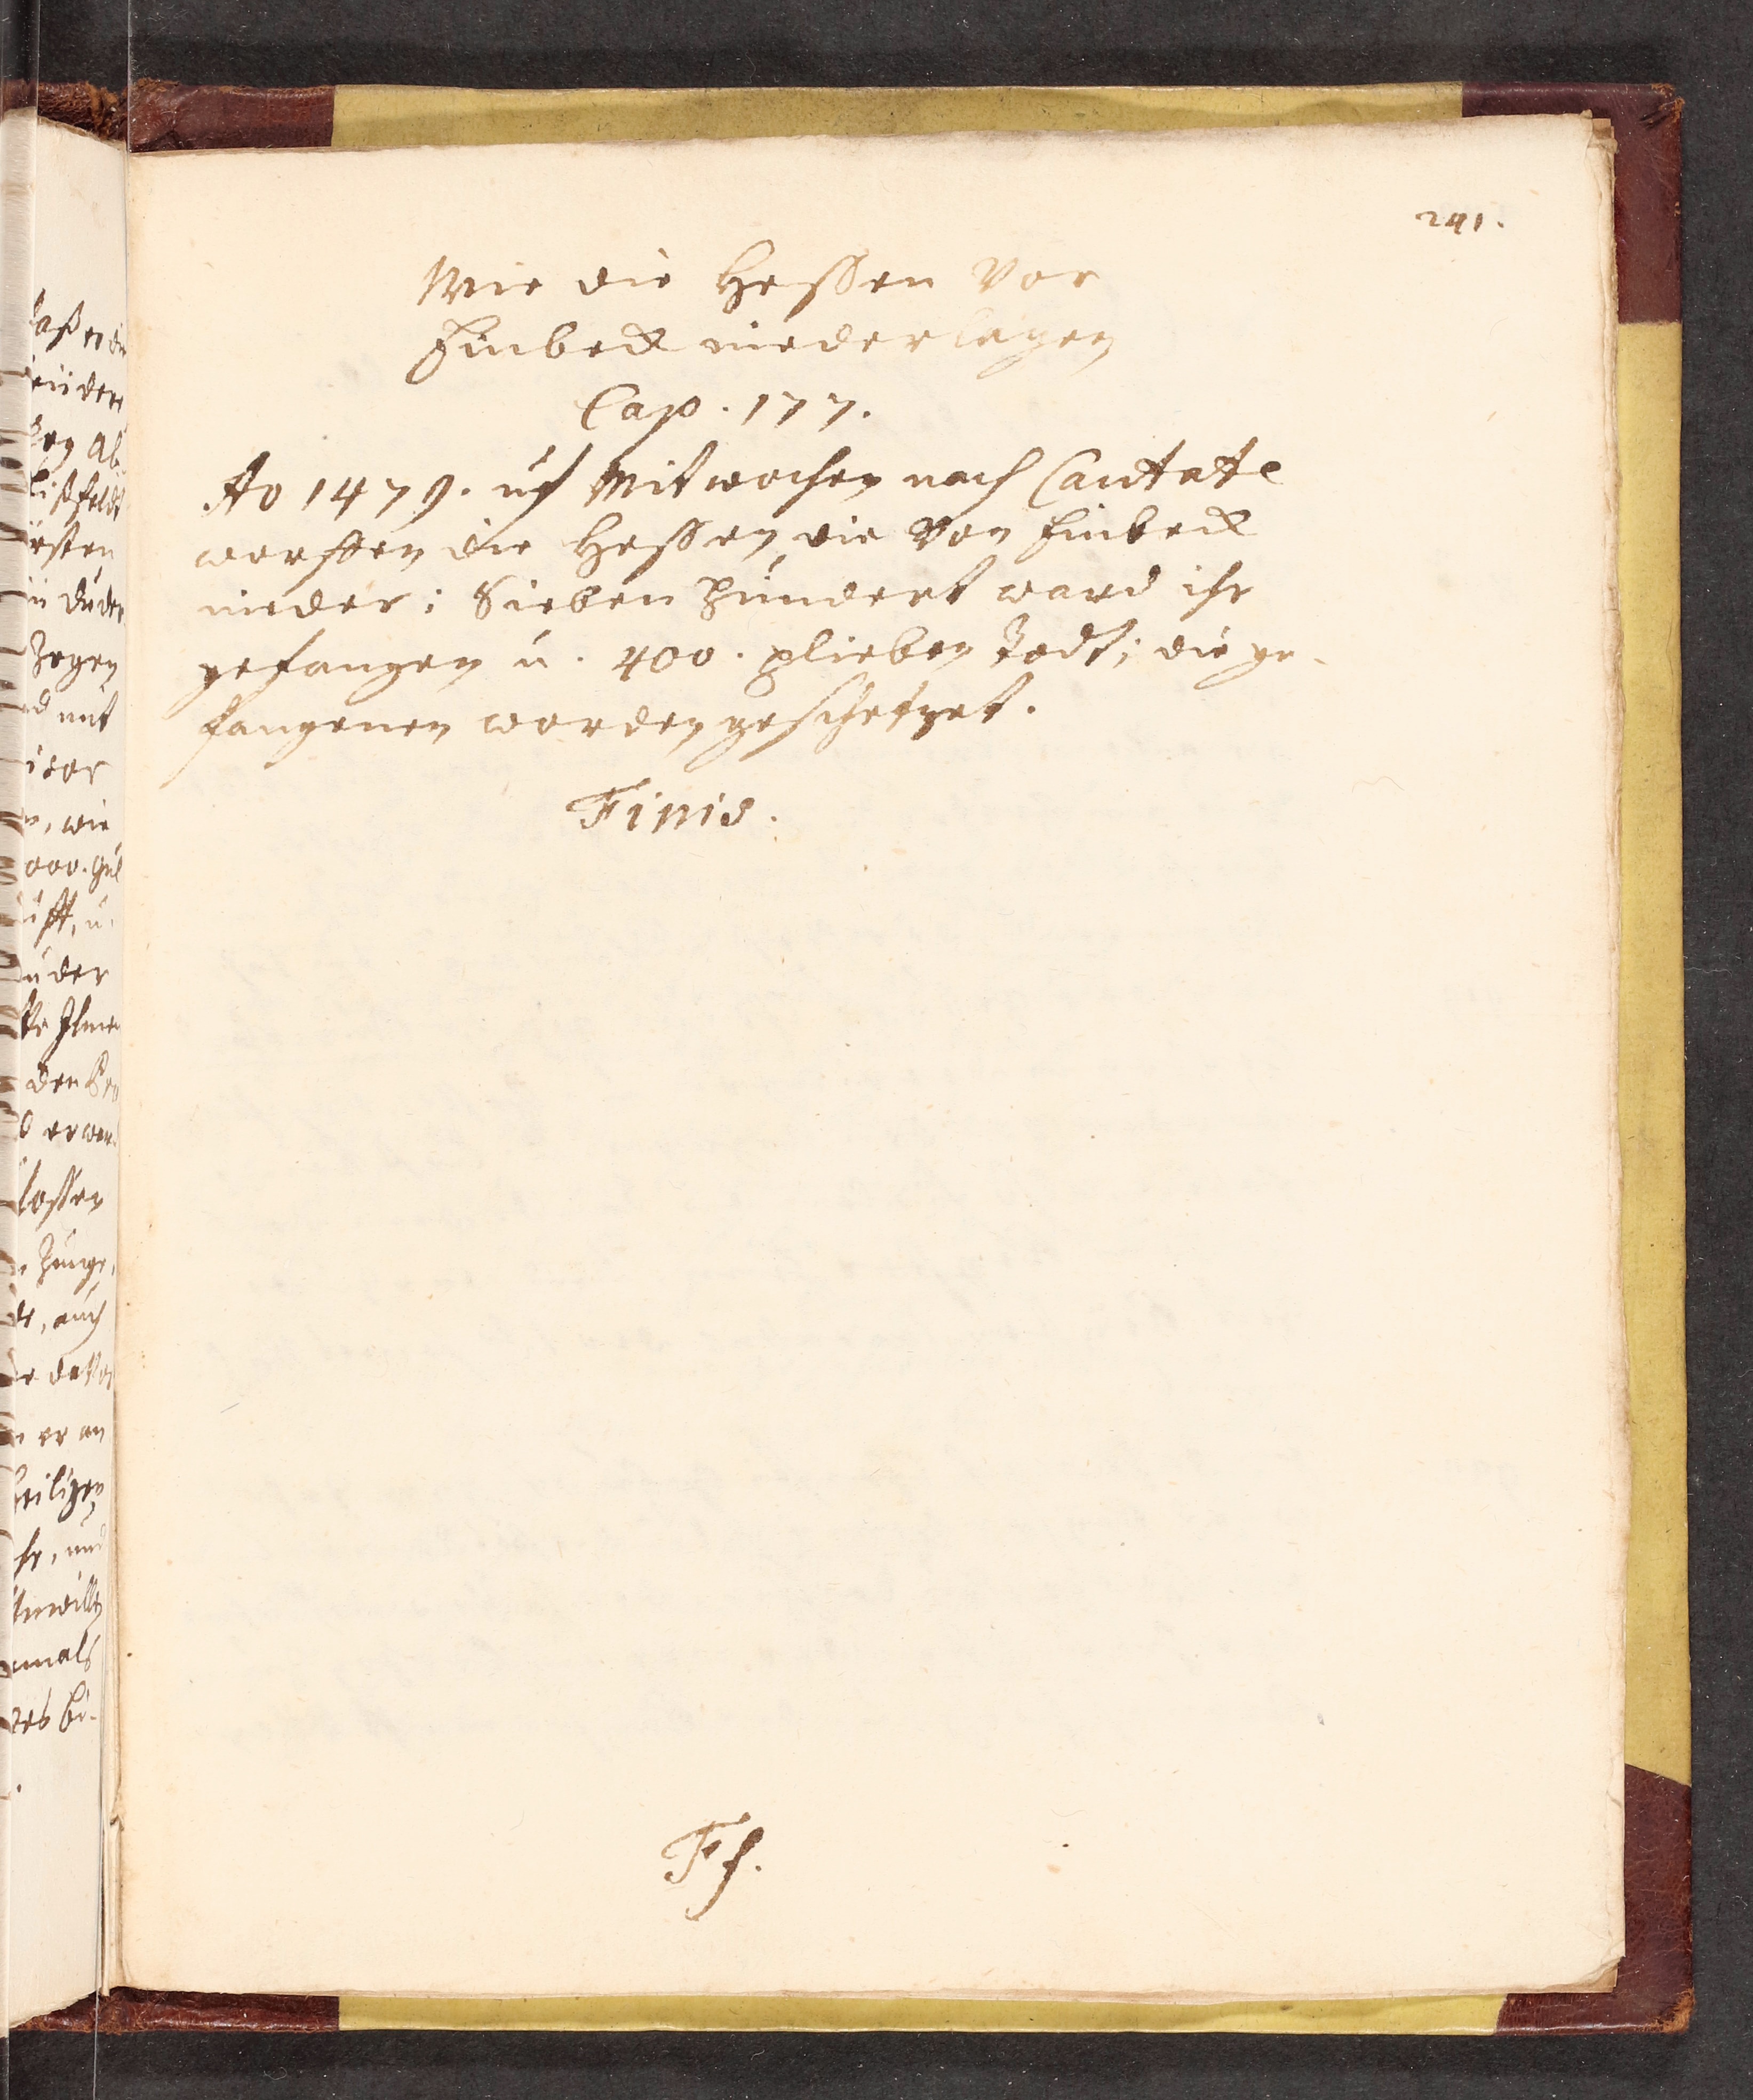 241.
Wie die Hessen Vor
Einbeck niederlagen
Cap. 177.
Ao 1479. uf Mitwochen nach Cantate
worffen die Hessen die Von Einbeck
nieder; Sieben Hundert ward ihr
gefangen u. 400. plieben Todt; die ge-
fangenen worden geschetzet.
Finis.
Ff.